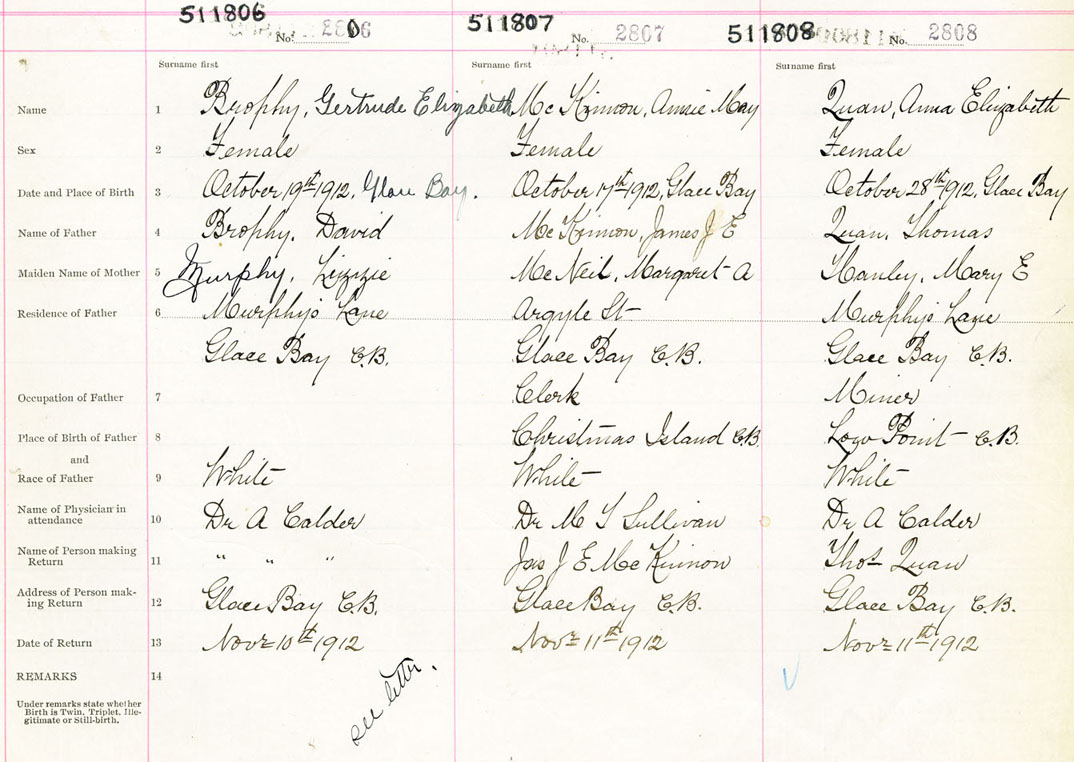 511806 No. 2806 511807 No. 2807 511808 No. 2808
Surname first Surname first Surname first
Name 1 Brophy, Gertrude Elizabeth Mc Kinnon, Annie May Quan, Anna Elizabeth
Sex 2 Female Female Female
Date and Place of Birth 3 October 19th 1912, Glace Bay. October 17th 1912, Glace Bay October 28th 1912, Glace Bay
Name of Father 4 Brophy, David Mc Kinnon, James J E Quan, Thomas
Maiden Name of Mother 5 Murphy, Lizzie Mc Neil, Margaret A Hanley, Mary E
Residence of Father 6 Murphys Lane Argyle St Murphys Lane
Glace Bay C.B. Glace Bay C.B. Glace Bay C.B.
Occupation of Father 7 Clerk Miner
Place of Birth of Father 8 Christmas Island C.B. Low Point C.B.
and
Race of Father 9 White White White
Name of Physician in
attendance 10 Dr A Calder Dr M T Sullivan Dr A Calder
Name of Person making
Return 11 " " " Jas J E Mc Kinnon Thos Quan
Address of Person mak-
ing Return 12 Glace Bay C.B. Glace Bay C.B. Glace Bay C.B.
Date of Return 13 Novr 10th 1912 Novr 11th 1912 Novr 11th 1912
REMARKS 14
see letter.
Under remarks state whether
Birth is Twin, Triplet, Ille-
gitimate or Still-birth.